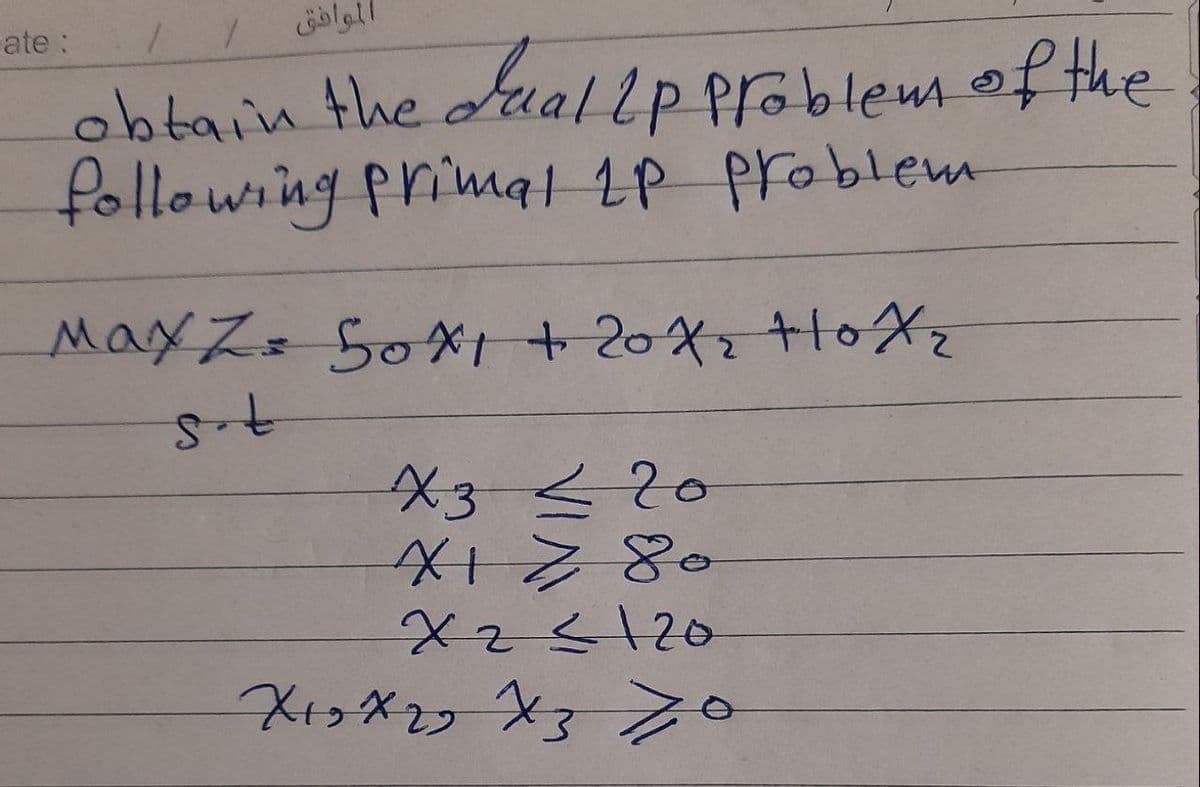 الموافق
ate : / /
obtain the dual lp problem of the
following primal lp problem
Max Z = 50X1 + 20X2 +10X2
s.t
X3 ≤ 20
X1 ≥ 80
X2 ≤ 120
X1, X2, X3 ≥ 0